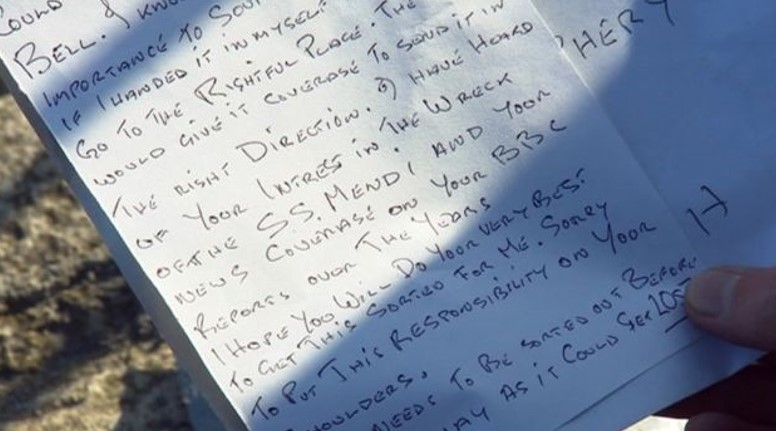 COULD
BELL. I KNOW
IMPORTANCE TO SOU
IF I HANDED IT IN MYSELF.
GO TO THE RIGHTFUL PLACE. THE
WOULD GIVE IT COVERAGE TO SEND IT IN
THE RIGHT DIRECTION. I HAVE HEARD
OF YOUR INTREST IN THE WRECK
OF THE S.S. MENDI AND YOUR
NEWS COVERAGE ON YOUR BBC
REPORTS OVER THE YEARS
I HOPE YOU WILL DO YOUR VERY BEST
TO GET THIS SORTED FOR ME. SORRY
TO PUT THIS RESPONSIBILITY ON YOUR
SHOULDERS.
NEEDS TO BE SORTED OUT BEFORE
AS IT COULD GET LOST
HERY
IT